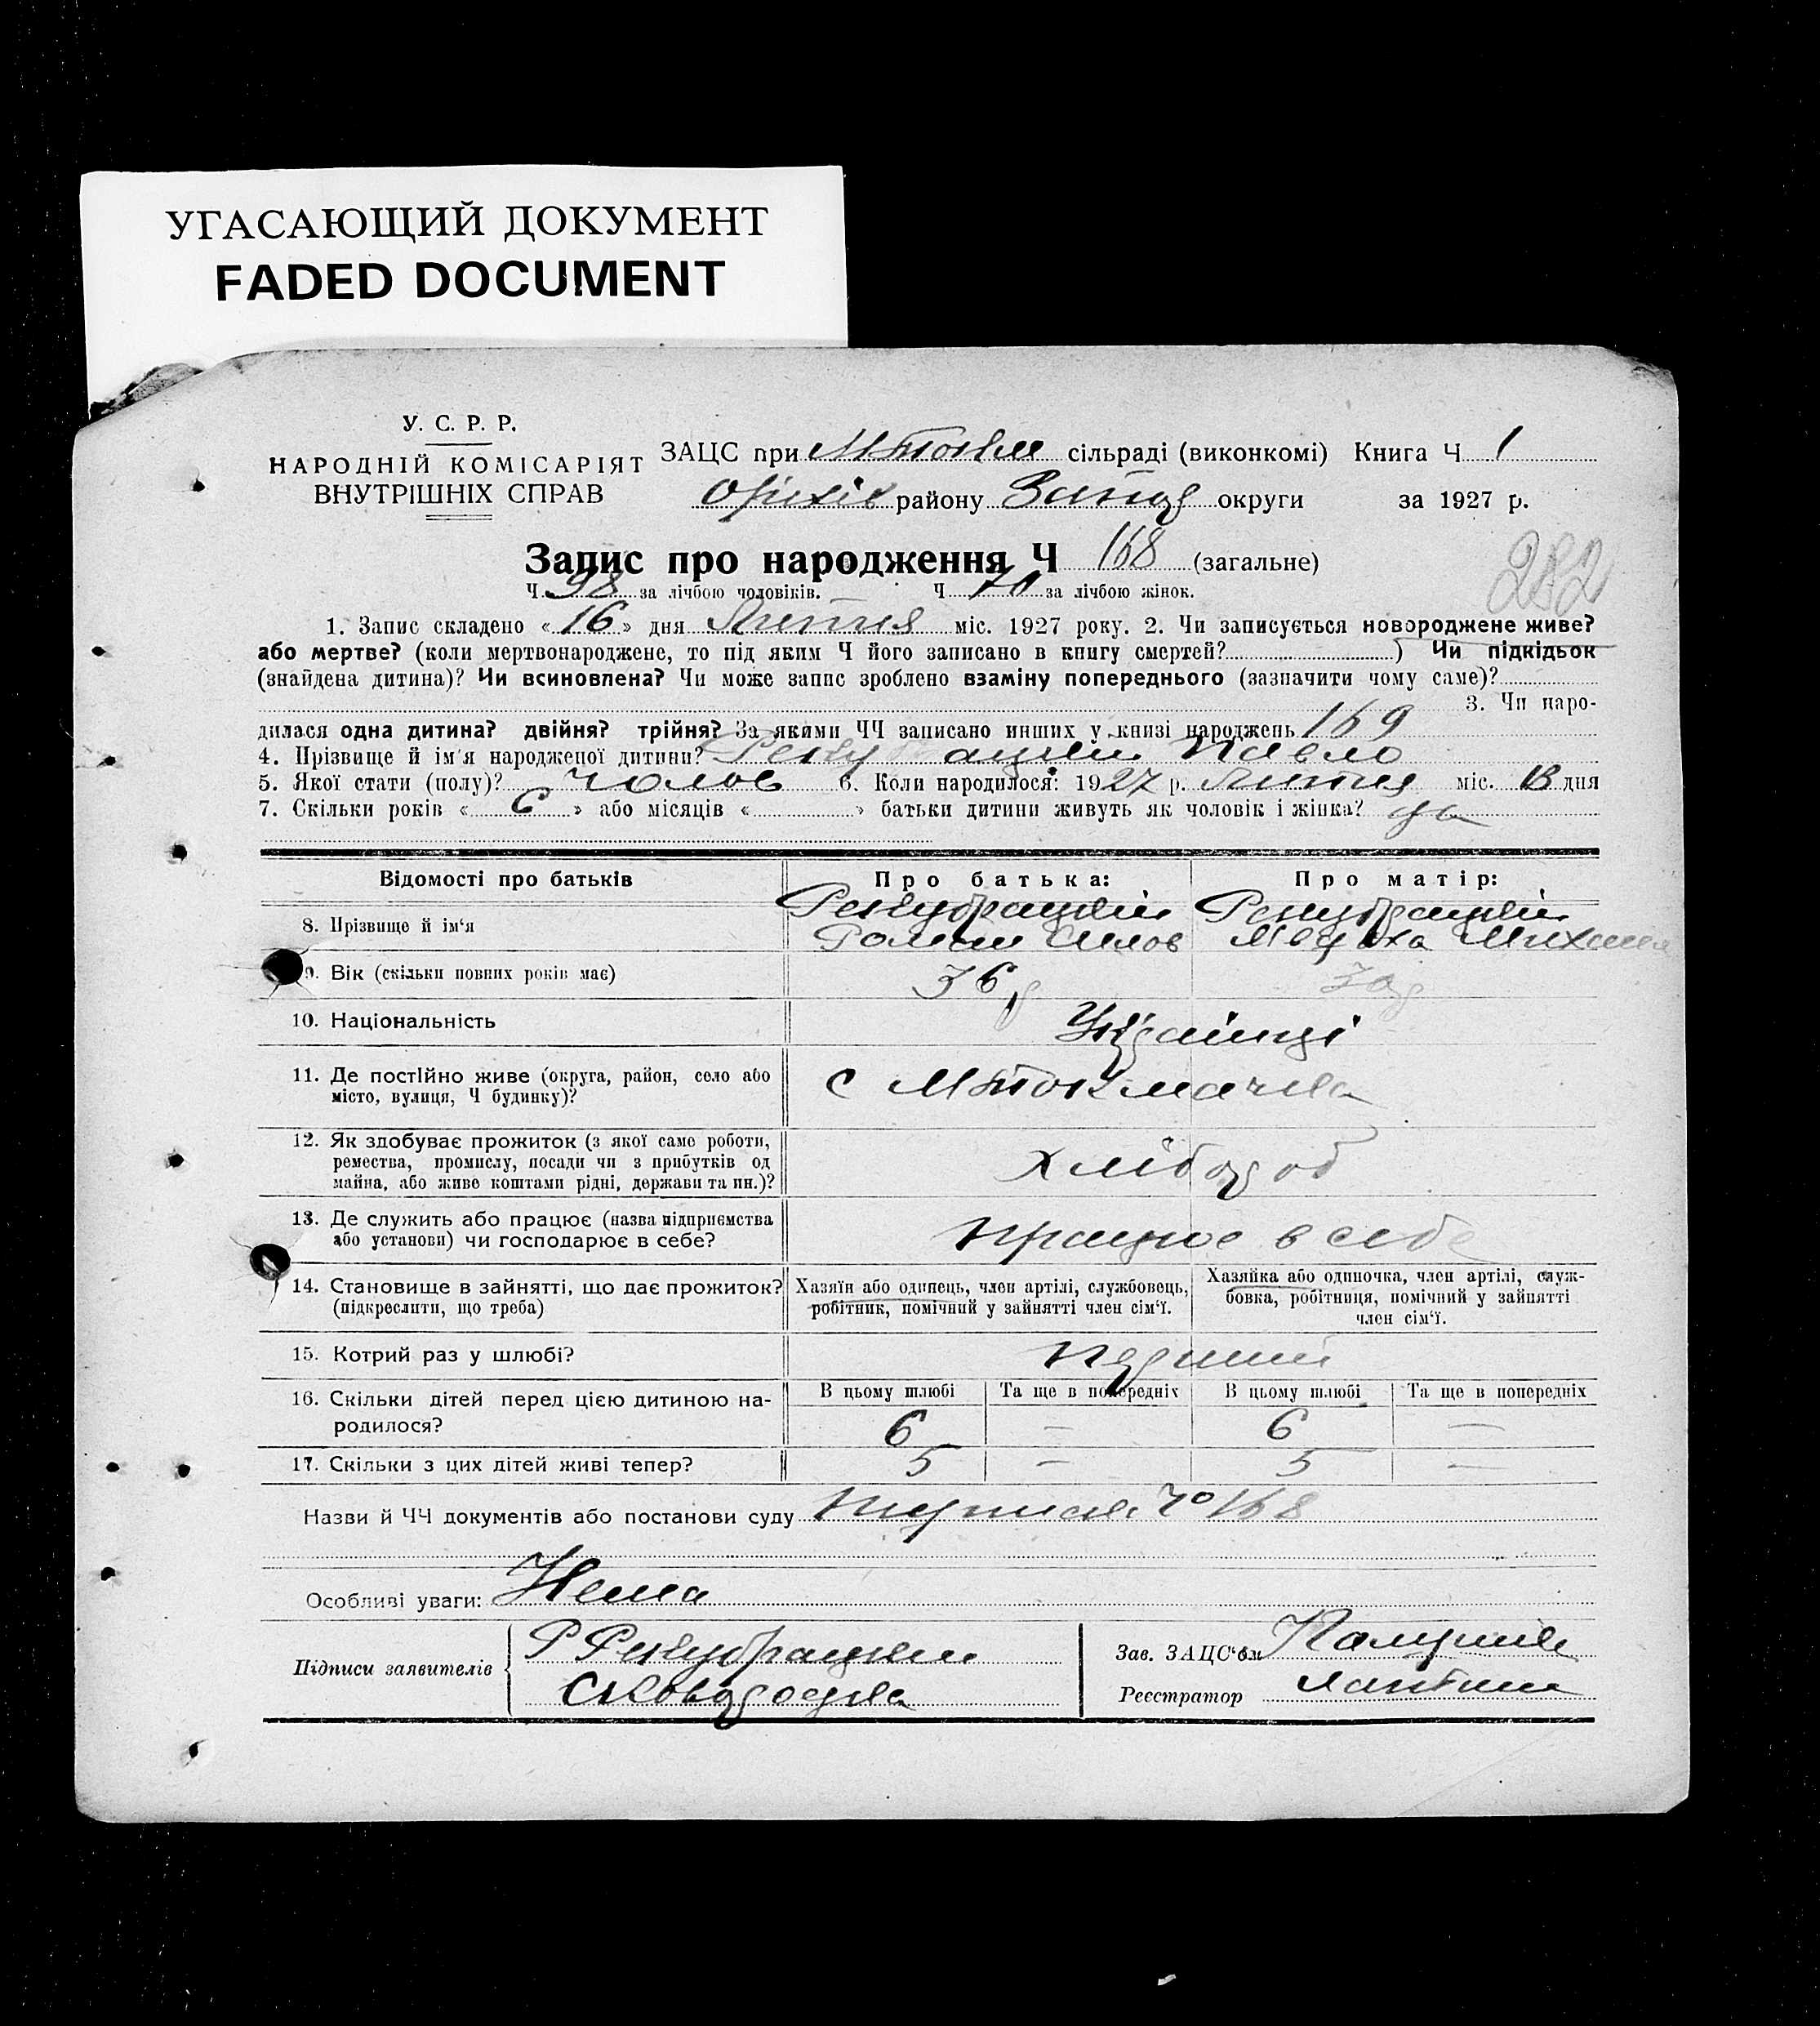 УГАСАЮЩИЙ ДОКУМЕНТ
FADED DOCUMENT
У. С. Р. Р.
НАРОДНІЙ КОМІСАРІЯТ
ВНУТРІШНІХ СПРАВ
ЗАЦС при МТокм сільраді (виконкомі) Книга Ч 1
Оріхів району Запор округи за 1927 р.
Запис про народження Ч 168 (загальне)
Ч 98 за лічбою чоловіків. Ч 70 за лічбою жінок.
282
1. Запис складено « 16 » дня Липня міс. 1927 року. 2. Чи записується новороджене живе?
або мертве? (коли мертвонароджене, то під яким Ч його записано в книгу смертей? ) Чи підкідьок
(знайдена дитина)? Чи всиновлена? Чи може запис зроблено взаміну попереднього (зазначити чому саме)?
3. Чи наро-
дилася одна дитина? двійня? трійня? За якими ЧЧ записано инших у книзі народжень 169
4. Прізвище й ім'я народженої дитини? Павло
5. Якої стати (полу)? чолов 6. Коли народилося: 1927 р. Липня міс. 13 дня
7. Скільки років « 6 » або місяців « » батьки дитини живуть як чоловік і жінка? да
Відомості про батьків Про батька: Про матір:
8. Прізвище й ім'я
Роман
9. Вік (скільки повних років має) 36 р 30 р
10. Національність Українці
11. Де постійно живе (округа, район, село або
місто, вулиця, Ч будинку)?
с МТокмачка
12. Як здобуває прожиток (з якої саме роботи,
ремества, промислу, посади чи з прибутків од
майна, або живе коштами рідні, держави та ин.)?
хлібороб
13. Де служить або працює (назва підприємства
або установи) чи господарює в себе?
працює в себе
14. Становище в зайнятті, що дає прожиток?
(підкреслити, що треба)
Хазяїн або одинець, член артілі, службовець,
робітник, помічний у зайнятті член сім'ї.
Хазяйка або одиночка, член артілі, служ-
бовка, робітниця, помічний у зайнятті
член сім'ї.
15. Котрий раз у шлюбі? перший
16. Скільки дітей перед цією дитиною на-
родилося?
В цьому шлюбі Та ще в попередніх В цьому шлюбі Та ще в попередніх
6 — 6 —
17. Скільки з цих дітей живі тепер? 5 — 5 —
Назви й ЧЧ документів або постанови суду 168
Особливі уваги: Нема
Підписи заявителів
Сковородка
Зав. ЗАЦС'ом
Реєстратор